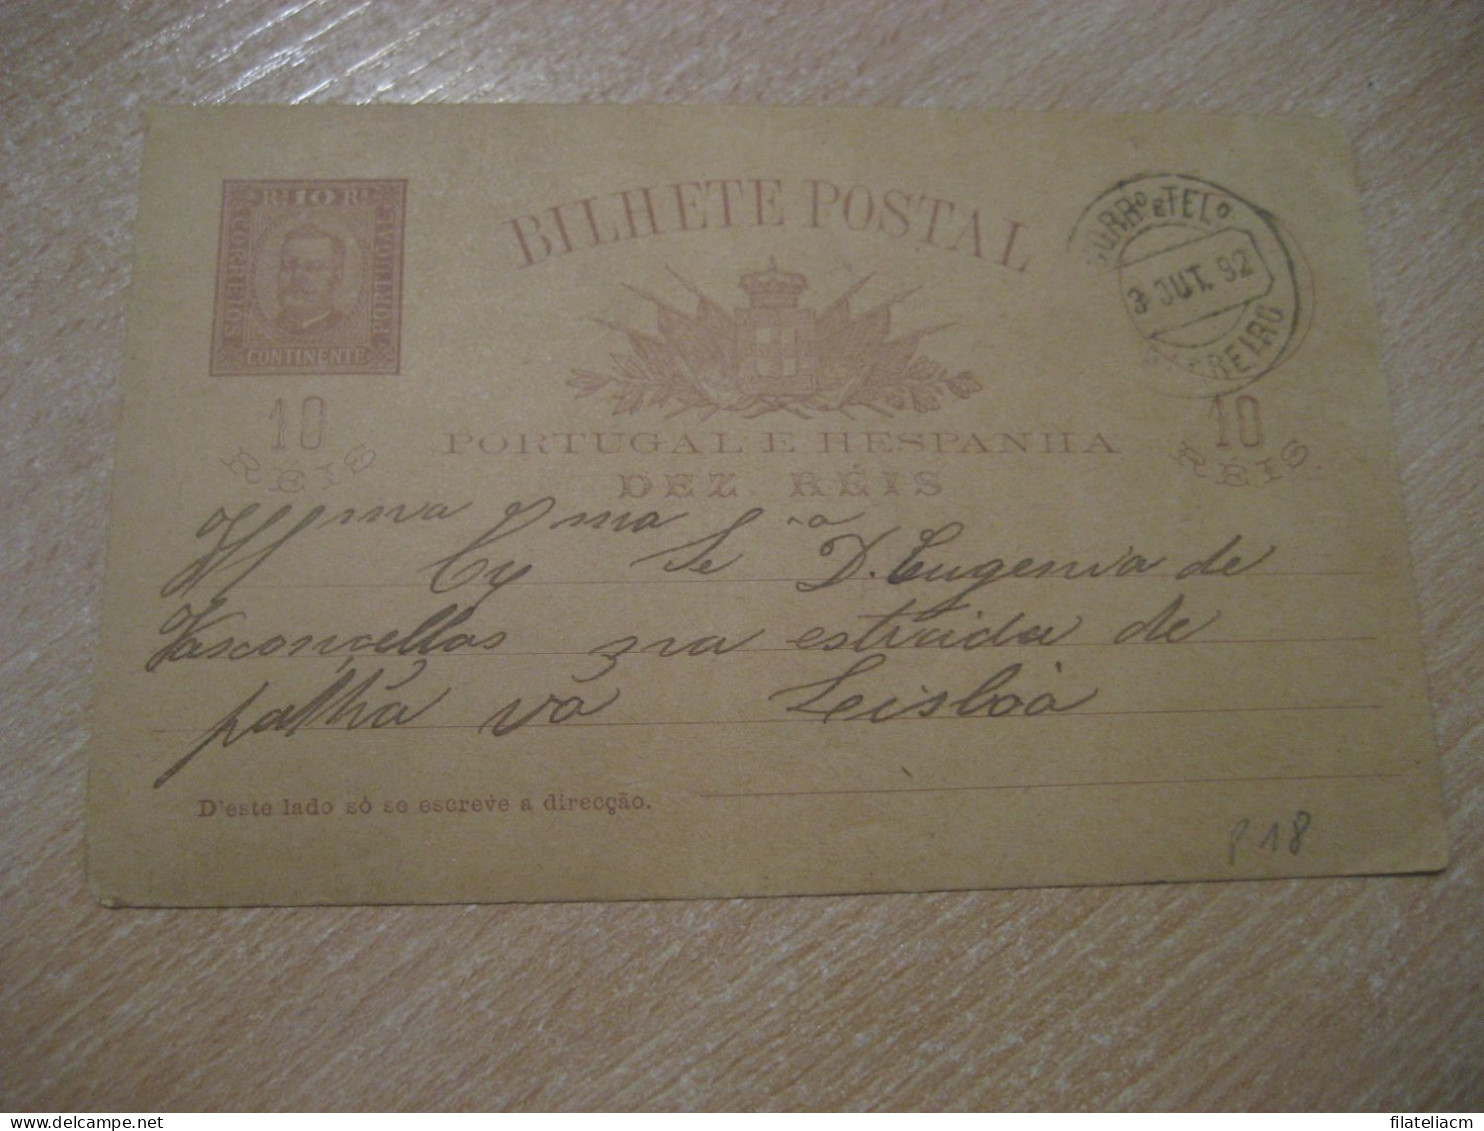 RI 10 RI
CORREIOS
PORTUGAL
CONTINENTE
BILHETE POSTAL
CORRº e TELº
3 OUT. 92
BARREIRO
10
REIS
PORTUGAL E HESPANHA
DEZ RÉIS
10
REIS.
D. Eugenia de
Vasconcellos na estrada de
palhã vã Leisboà
D'este lado só se escreve a direcção.
P 18
filateliacm